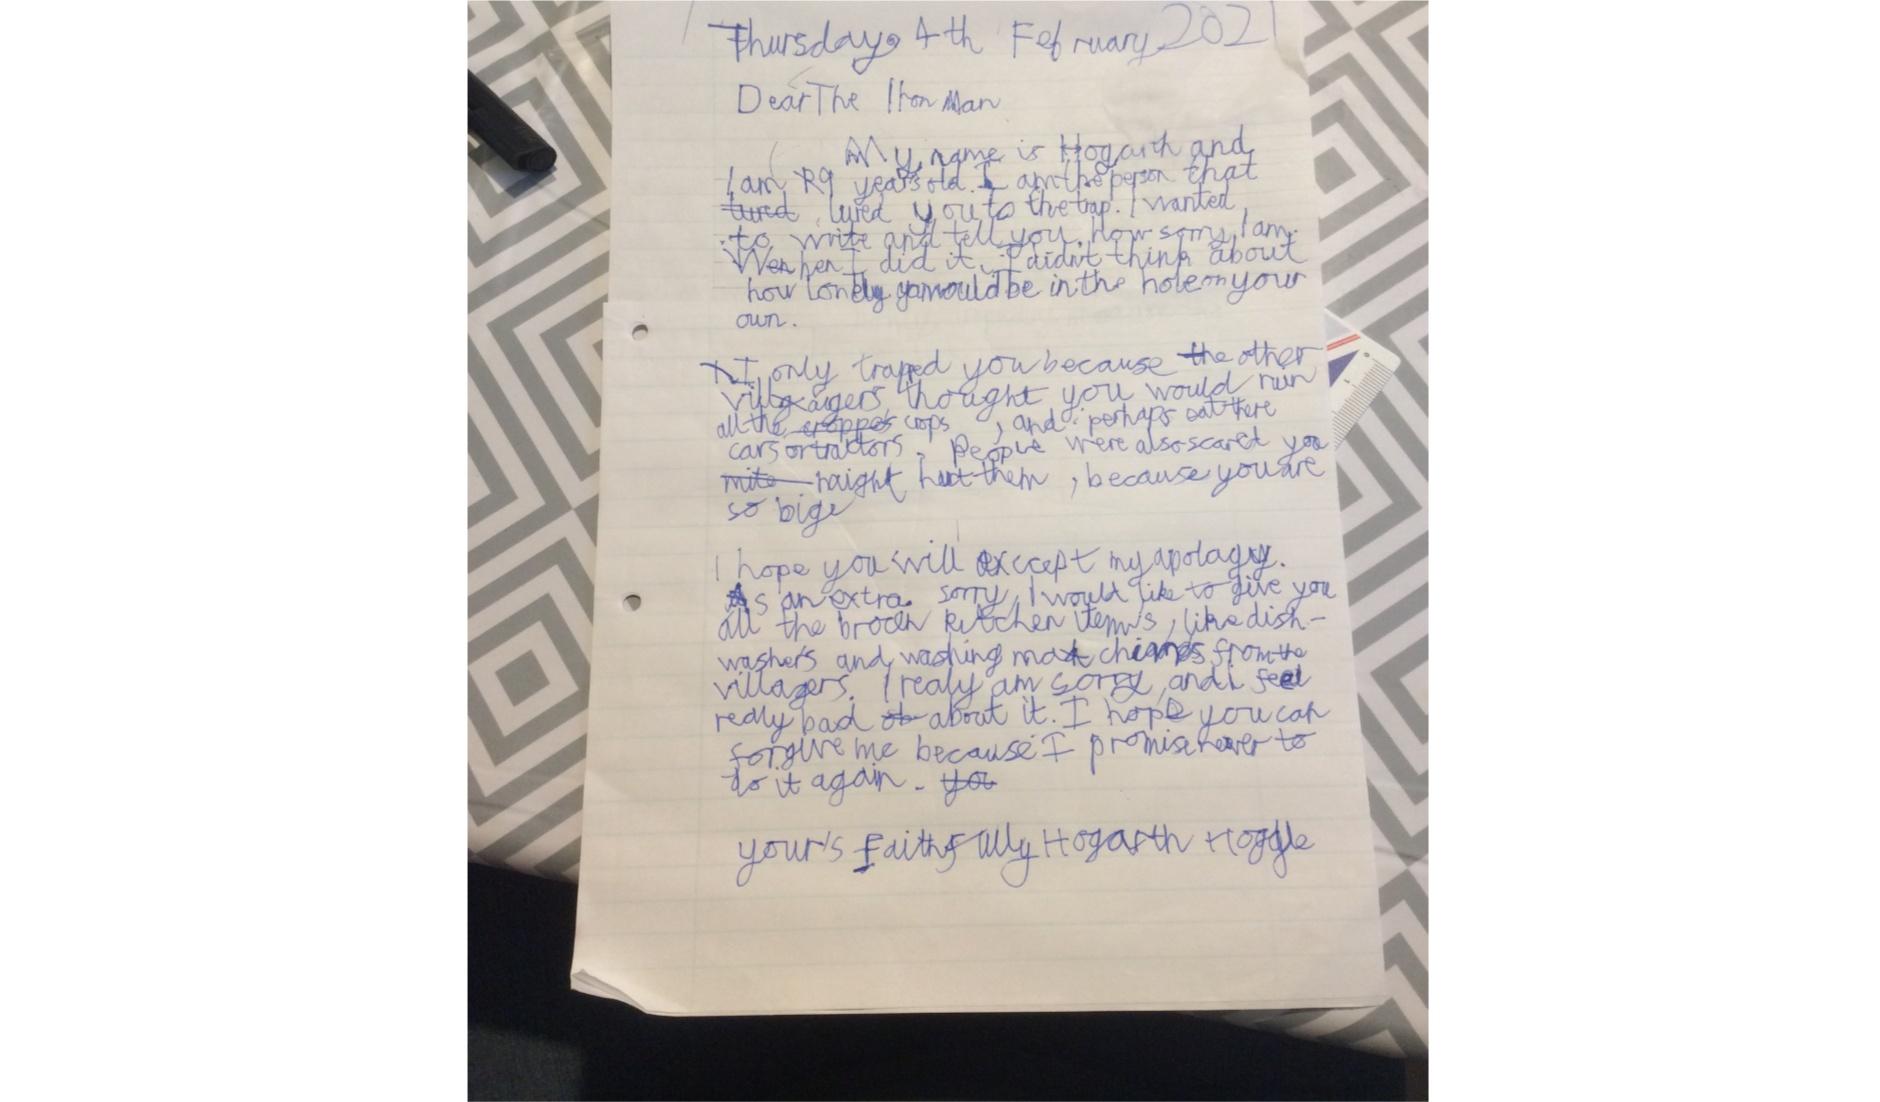 Thursday 4th February 2021
Dear The Iron Man
My name is Hogarth and
I am 9 years old. I am the person that
lured lured you to the trap. I wanted
to write and tell you, how sorry I am.
When I did it, I didn't think about
how lonely you would be in the hole on your
own.
I only trapped you because the other
villagers thought you would ruin
all the croppes crops, and perhaps eat there
cars or tractors. People were also scared you
mite might hurt them, because you are
so big
I hope you will except my apolagy.
As an extra sorry, I would like to give you
all the brocen kitchen items, like dish-
washers and washing machines from the
villagers. I realy am sorry, and I feel
realy bad ob about it. I hope you can
forgive me because I promise never to
do it again. you
your's faithfully Hogarth Hoggle